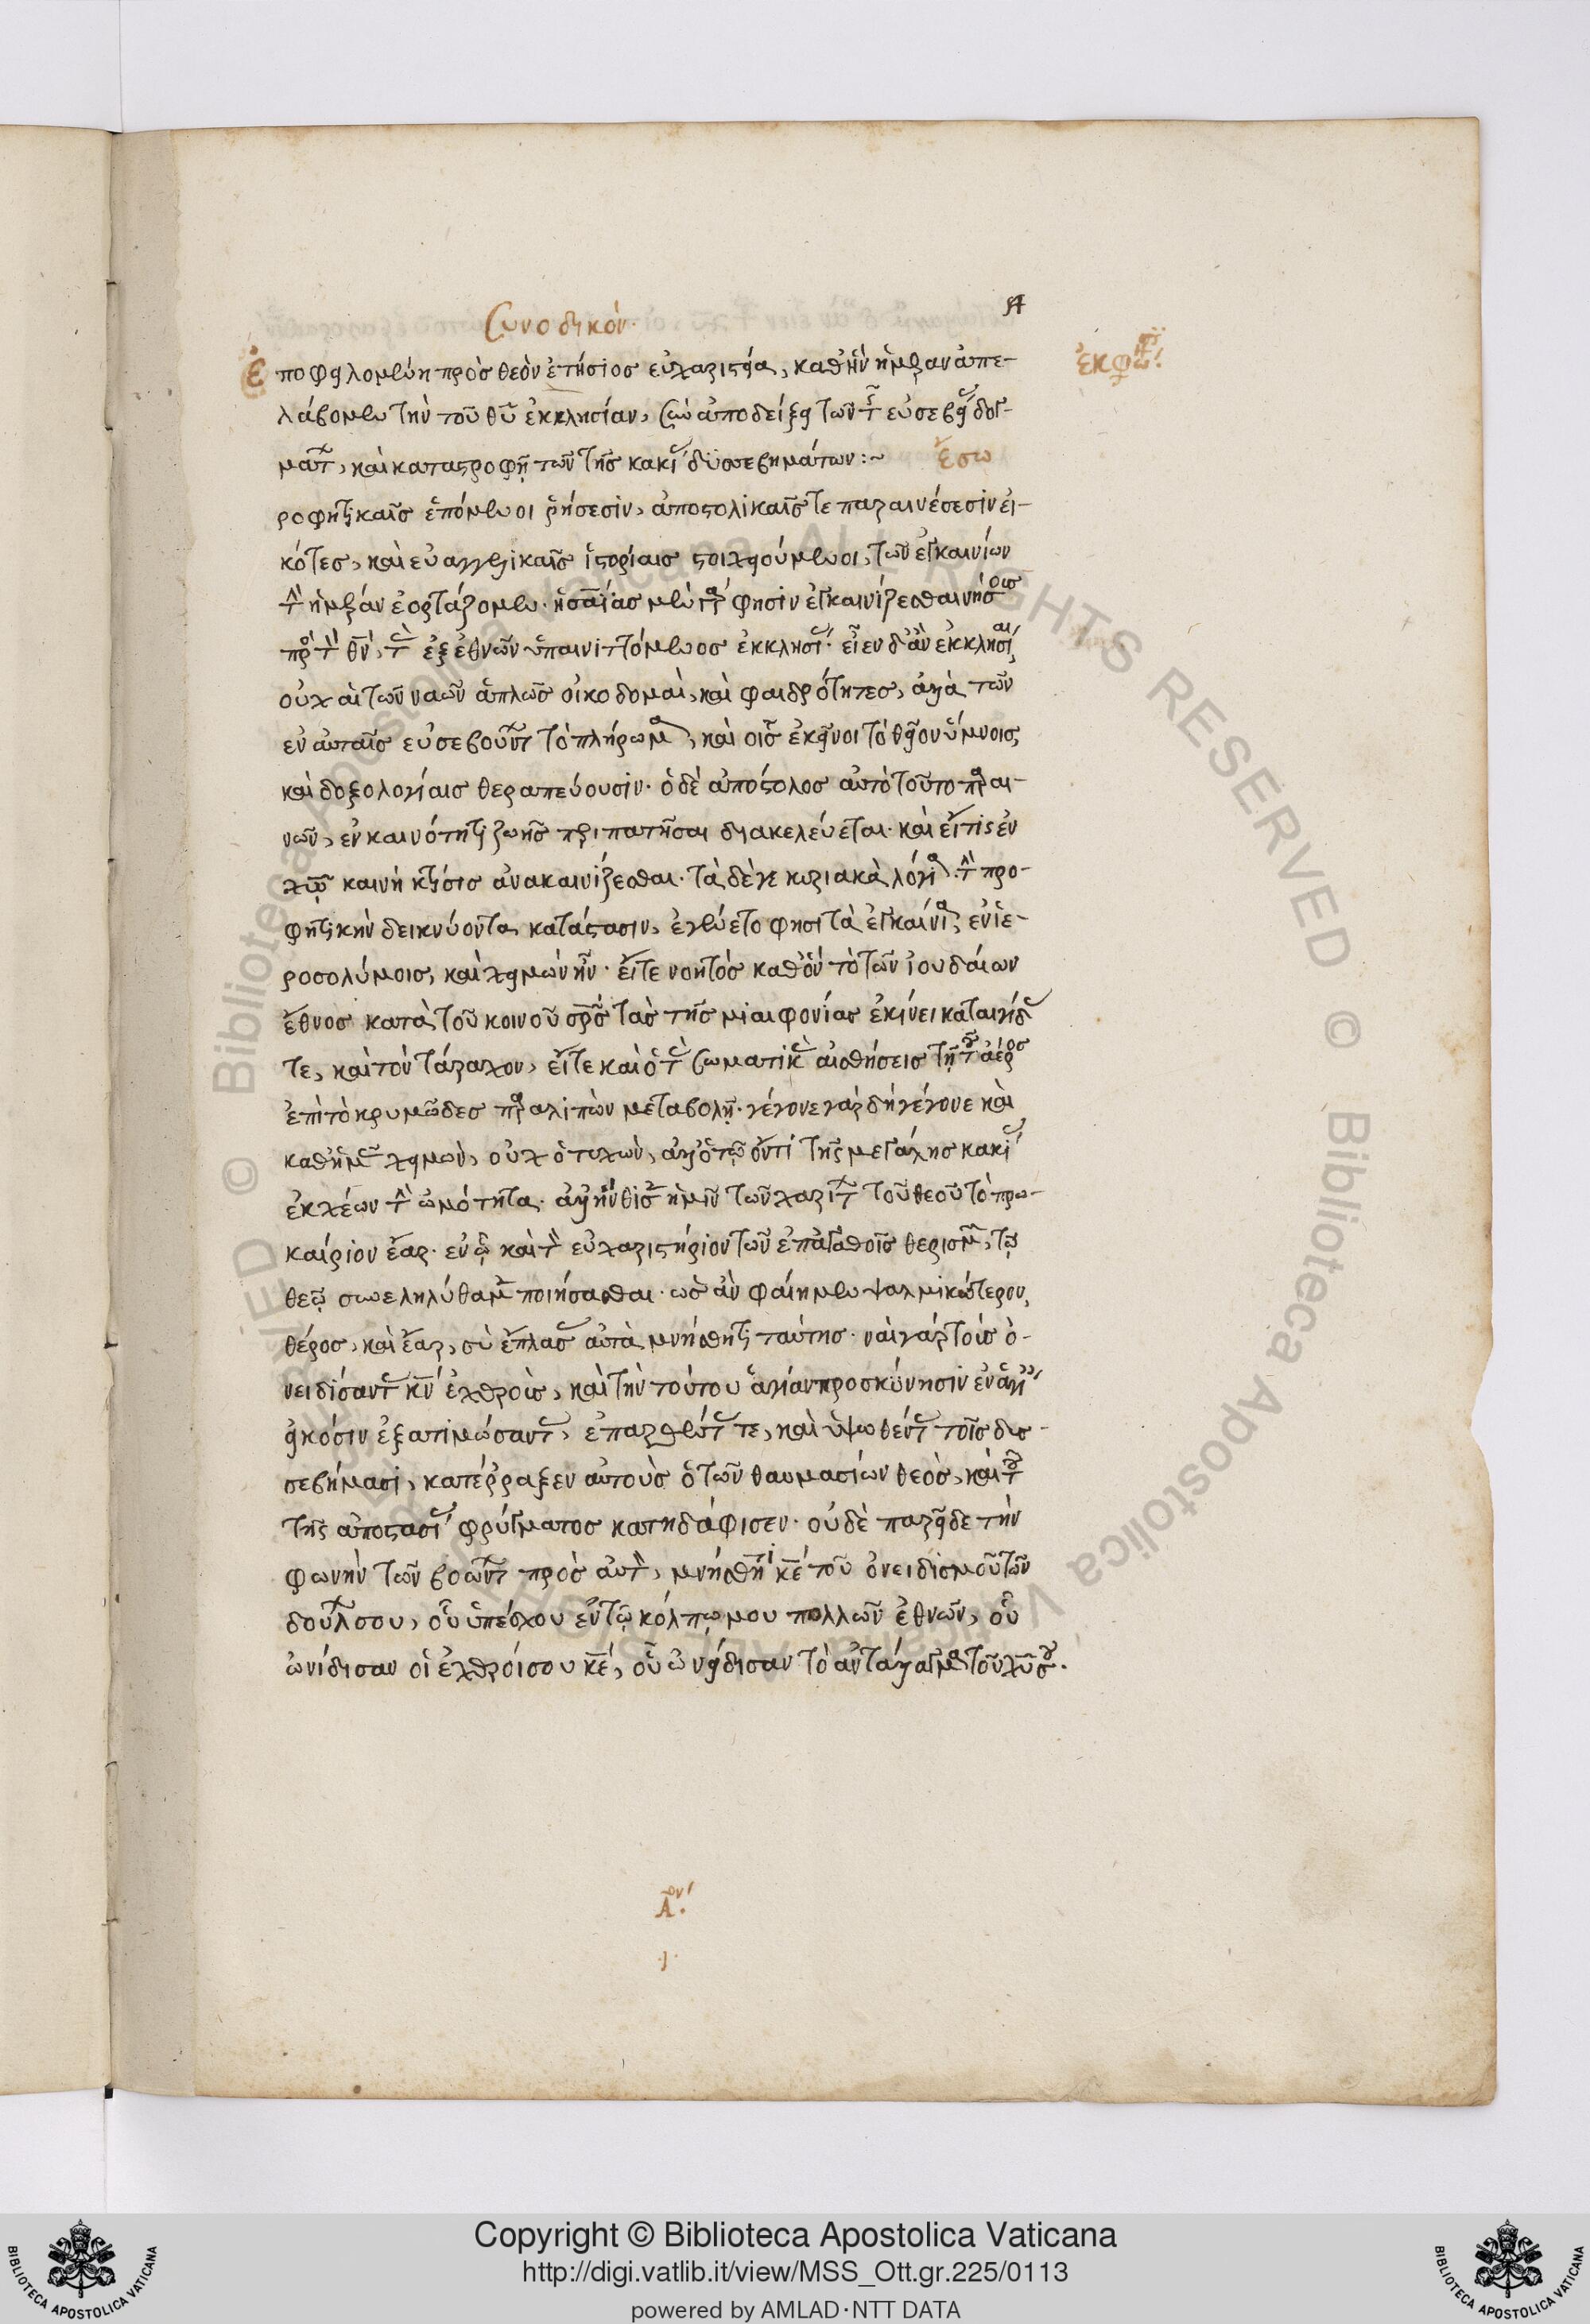 Συνοδικόν.
Ἐποφειλομένη πρὸς θεὸν ἐτήσιος εὐχαριστία, καθ' ἣν ἡμέραν ἀπε-
λάβομεν τὴν τοῦ θυ ἐκκλησίαν, σὺν ἀποδείξει τῶν τῆς εὐσεβείας δογ-
μάτων, καὶ καταστροφῇ τῶν τῆς κακίας δυσσεβημάτων:~ ἔσω
ροφητικαῖς ἑπόμενοι ῥήσεσιν, ἀποστολικαῖς τε παραινέσεσιν εἰ-
κότες, καὶ εὐαγγελικαῖς ἱστορίαις στοιχειούμενοι, τῶν ἐγκαινίων
τὴν ἡμέραν ἑορτάζομεν. ἡσαΐας μὲν γάρ φησιν ἐγκαινίζεσθαι νήσους
πρὸς τὸν θν, τὰς ἐξ ἐθνῶν ὑπαινιττόμενος ἐκκλησίας. εἶεν δ' ἂν ἐκκλησίαι,
οὐχ αἱ τῶν ναῶν ἁπλῶς οἰκοδομαὶ, καὶ φαιδρότητες, ἀλλὰ τῶν
ἐν αὐταῖς εὐσεβούντων τὸ πλήρωμα, καὶ οἷς ἐκεῖνοι τὸ θεῖον ὕμνοις,
καὶ δοξολογίαις θεραπεύουσιν. ὁ δὲ ἀπόστολος αὐτὸ τοῦτο παραι-
νῶν, ἐν καινότητι ζωῆς περιπατῆσαι διακελεύεται. καὶ εἴ τις ἐν
χῶ καινὴ κτίσις ἀνακαινίζεσθαι. τὰ δέ γε κυριακὰ λόγια τὴν προ-
φητικὴν δεικνύοντα κατάστασιν, ἐγένετο φησὶ τὰ ἐγκαίνια, ἐν ἱε-
ροσολύμοις, καὶ χειμὼν ἦν. εἴτε νοητὸς καθ' ὃν τὸ τῶν ἰουδαίων
ἔθνος κατὰ τοῦ κοινοῦ σρς τὰς τῆς μιαιφονίας ἐκίνει καταιγίδας
τε, καὶ τὸν τάραχον, εἴτε καὶ ὁ τὰς σωματικὰς αἰσθήσεις τῇ τοῦ ἀέρος
ἐπὶ τὸ κρυμῶδες παραλιπὼν μεταβολῇ. γέγονε γὰρ δὴ γέγονε καὶ
καθ' ἡμᾶς χειμὼν, οὐχ ὁ τυχὼν, ἀλλ' ὁ τῷ ὄντι τῆς μεγάλης κακίας
ἐκχέων τὴν ὠμότητα. ἀλλ' ἤνθισεν ἡμῖν τῶν χαρίτων τοῦ θεοῦ τὸ πρω-
καίριον ἔαρ. ἐν ᾧ καὶ τὸ εὐχαριστήριον τῶν ἐπ' ἀγαθοῖς θερισμῶν, τῷ
θεῷ συνεληλύθαμεν ποιήσασθαι. ὡς ἂν φαίημεν ψαλμικώτερον,
θέρος, καὶ ἔαρ, σὺ ἔπλασας αὐτὰ μνήσθητι ταύτης. ναὶ γὰρ τοὺς ὀ-
νειδίσαντας κν ἐχθροὺς, καὶ τὴν τούτου ἁγίαν προσκύνησιν ἐν ἁγίαις
εἰκόσιν ἐξατιμώσαντας, ἐπαρθέντας τε, καὶ ὑψωθέντας τοῖς δυσ-
σεβήμασι, κατέρραξεν αὐτοὺς ὁ τῶν θαυμασίων θεὸς, καὶ τὸ
τῆς ἀποστασίας φρύαγματος κατηδάφισεν. οὐδὲ παρεῖδε τὴν
φωνὴν τῶν βοώντων πρὸς αὐτὸν, μνήσθητι κε τοῦ ὀνειδισμοῦ τῶν
δούλων σου, οὗ ὑπέσχον ἐν τῷ κόλπῳ μου πολλῶν ἐθνῶν, οὗ
ὠνίδισαν οἱ ἐχθροί σου κε, οὗ ὠνείδισαν τὸ ἀντάλλαγμα τοῦ χυ σου.
Copyright © Biblioteca Apostolica Vaticana
http://digi.vatlib.it/view/MSS_Ott.gr.225/0113
powered by AMLAD·NTT DATA